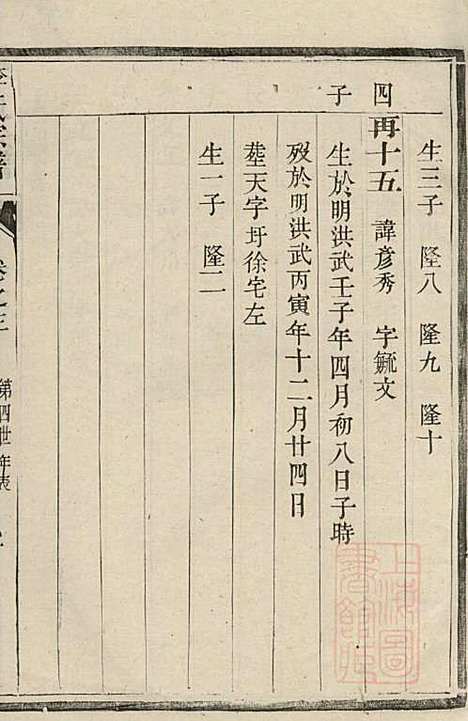 生三子 隆八 隆九 隆十
四子
再十五 諱彥秀 字毓文
生於明洪武壬子年四月初八日子時
歿於明洪武丙寅年十二月廿四日
塟天字圩徐宅左
生一子 隆二
卷之三
第四世年表
上海圖書館藏